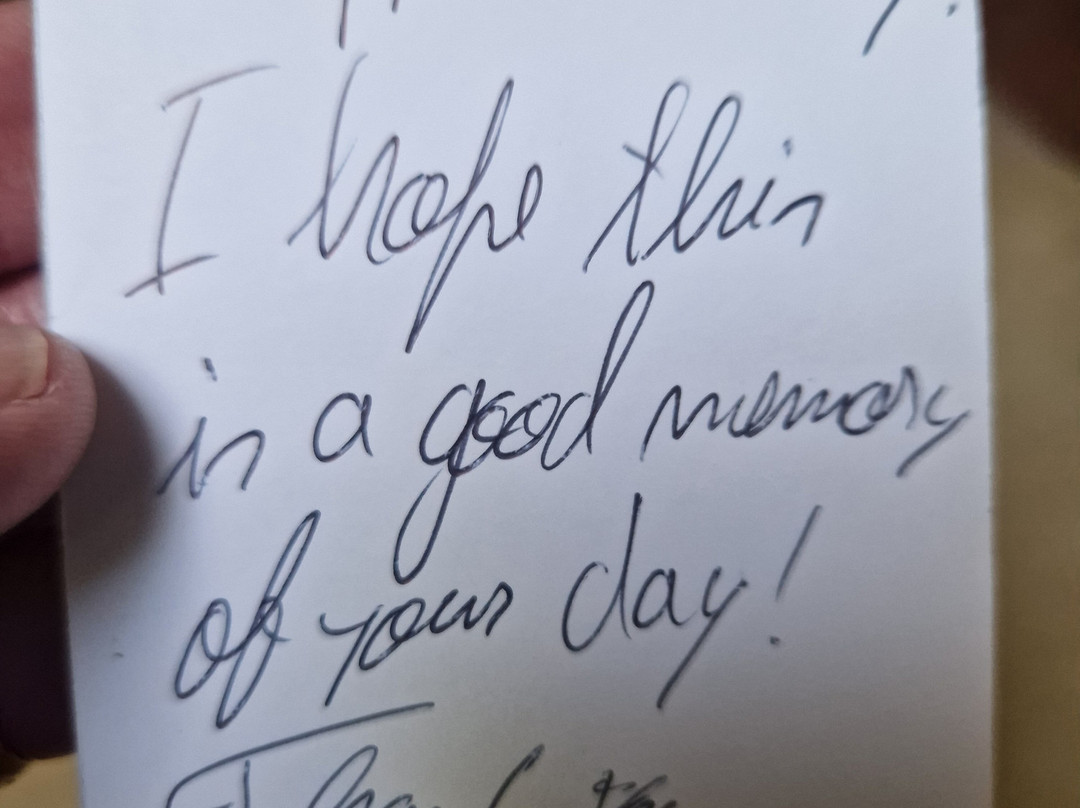 I hope this
is a good memory
of your day!